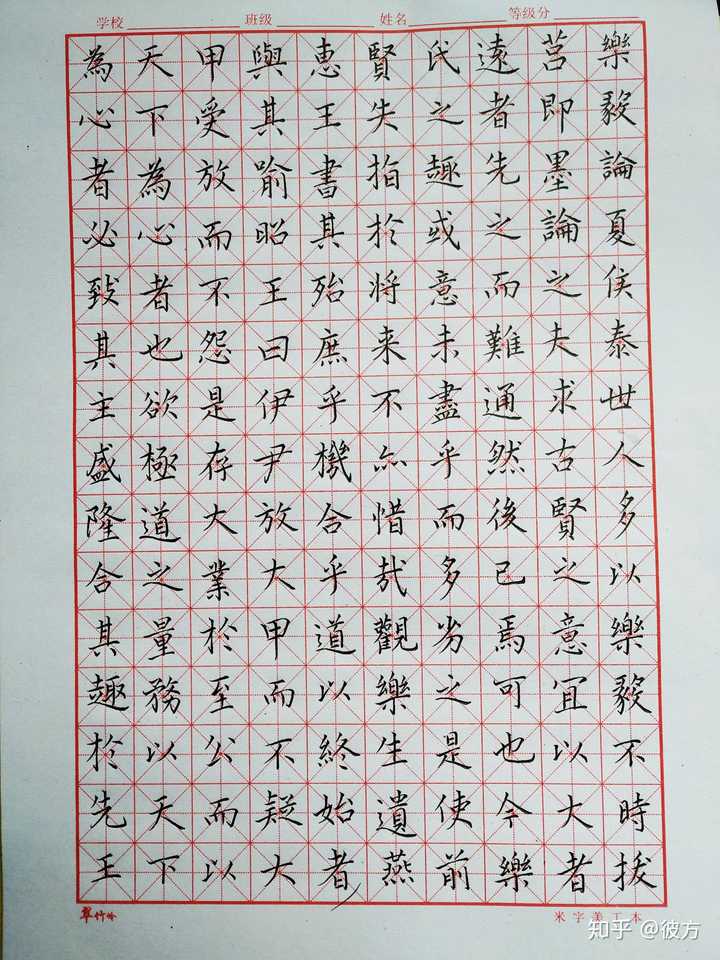 学校 班级 姓名 等级分
樂毅論夏侯泰世人多以樂毅不時拔
莒即墨論之夫求古賢之意宜以大者
遠者先之而難通然後已焉可也今樂
氏之趣或意未盡乎而多劣之是使前
賢失指於将来不亦惜哉觀樂生遺燕
恵王書其殆庶乎機合乎道以終始者
與其喻昭王曰伊尹放大甲而不疑大
甲受放而不怨是存大業於至公而以
天下為心者也欲極道之量務以天下
為心者必致其主盛隆合其趣於先王
米字美工本
知乎 @彼方